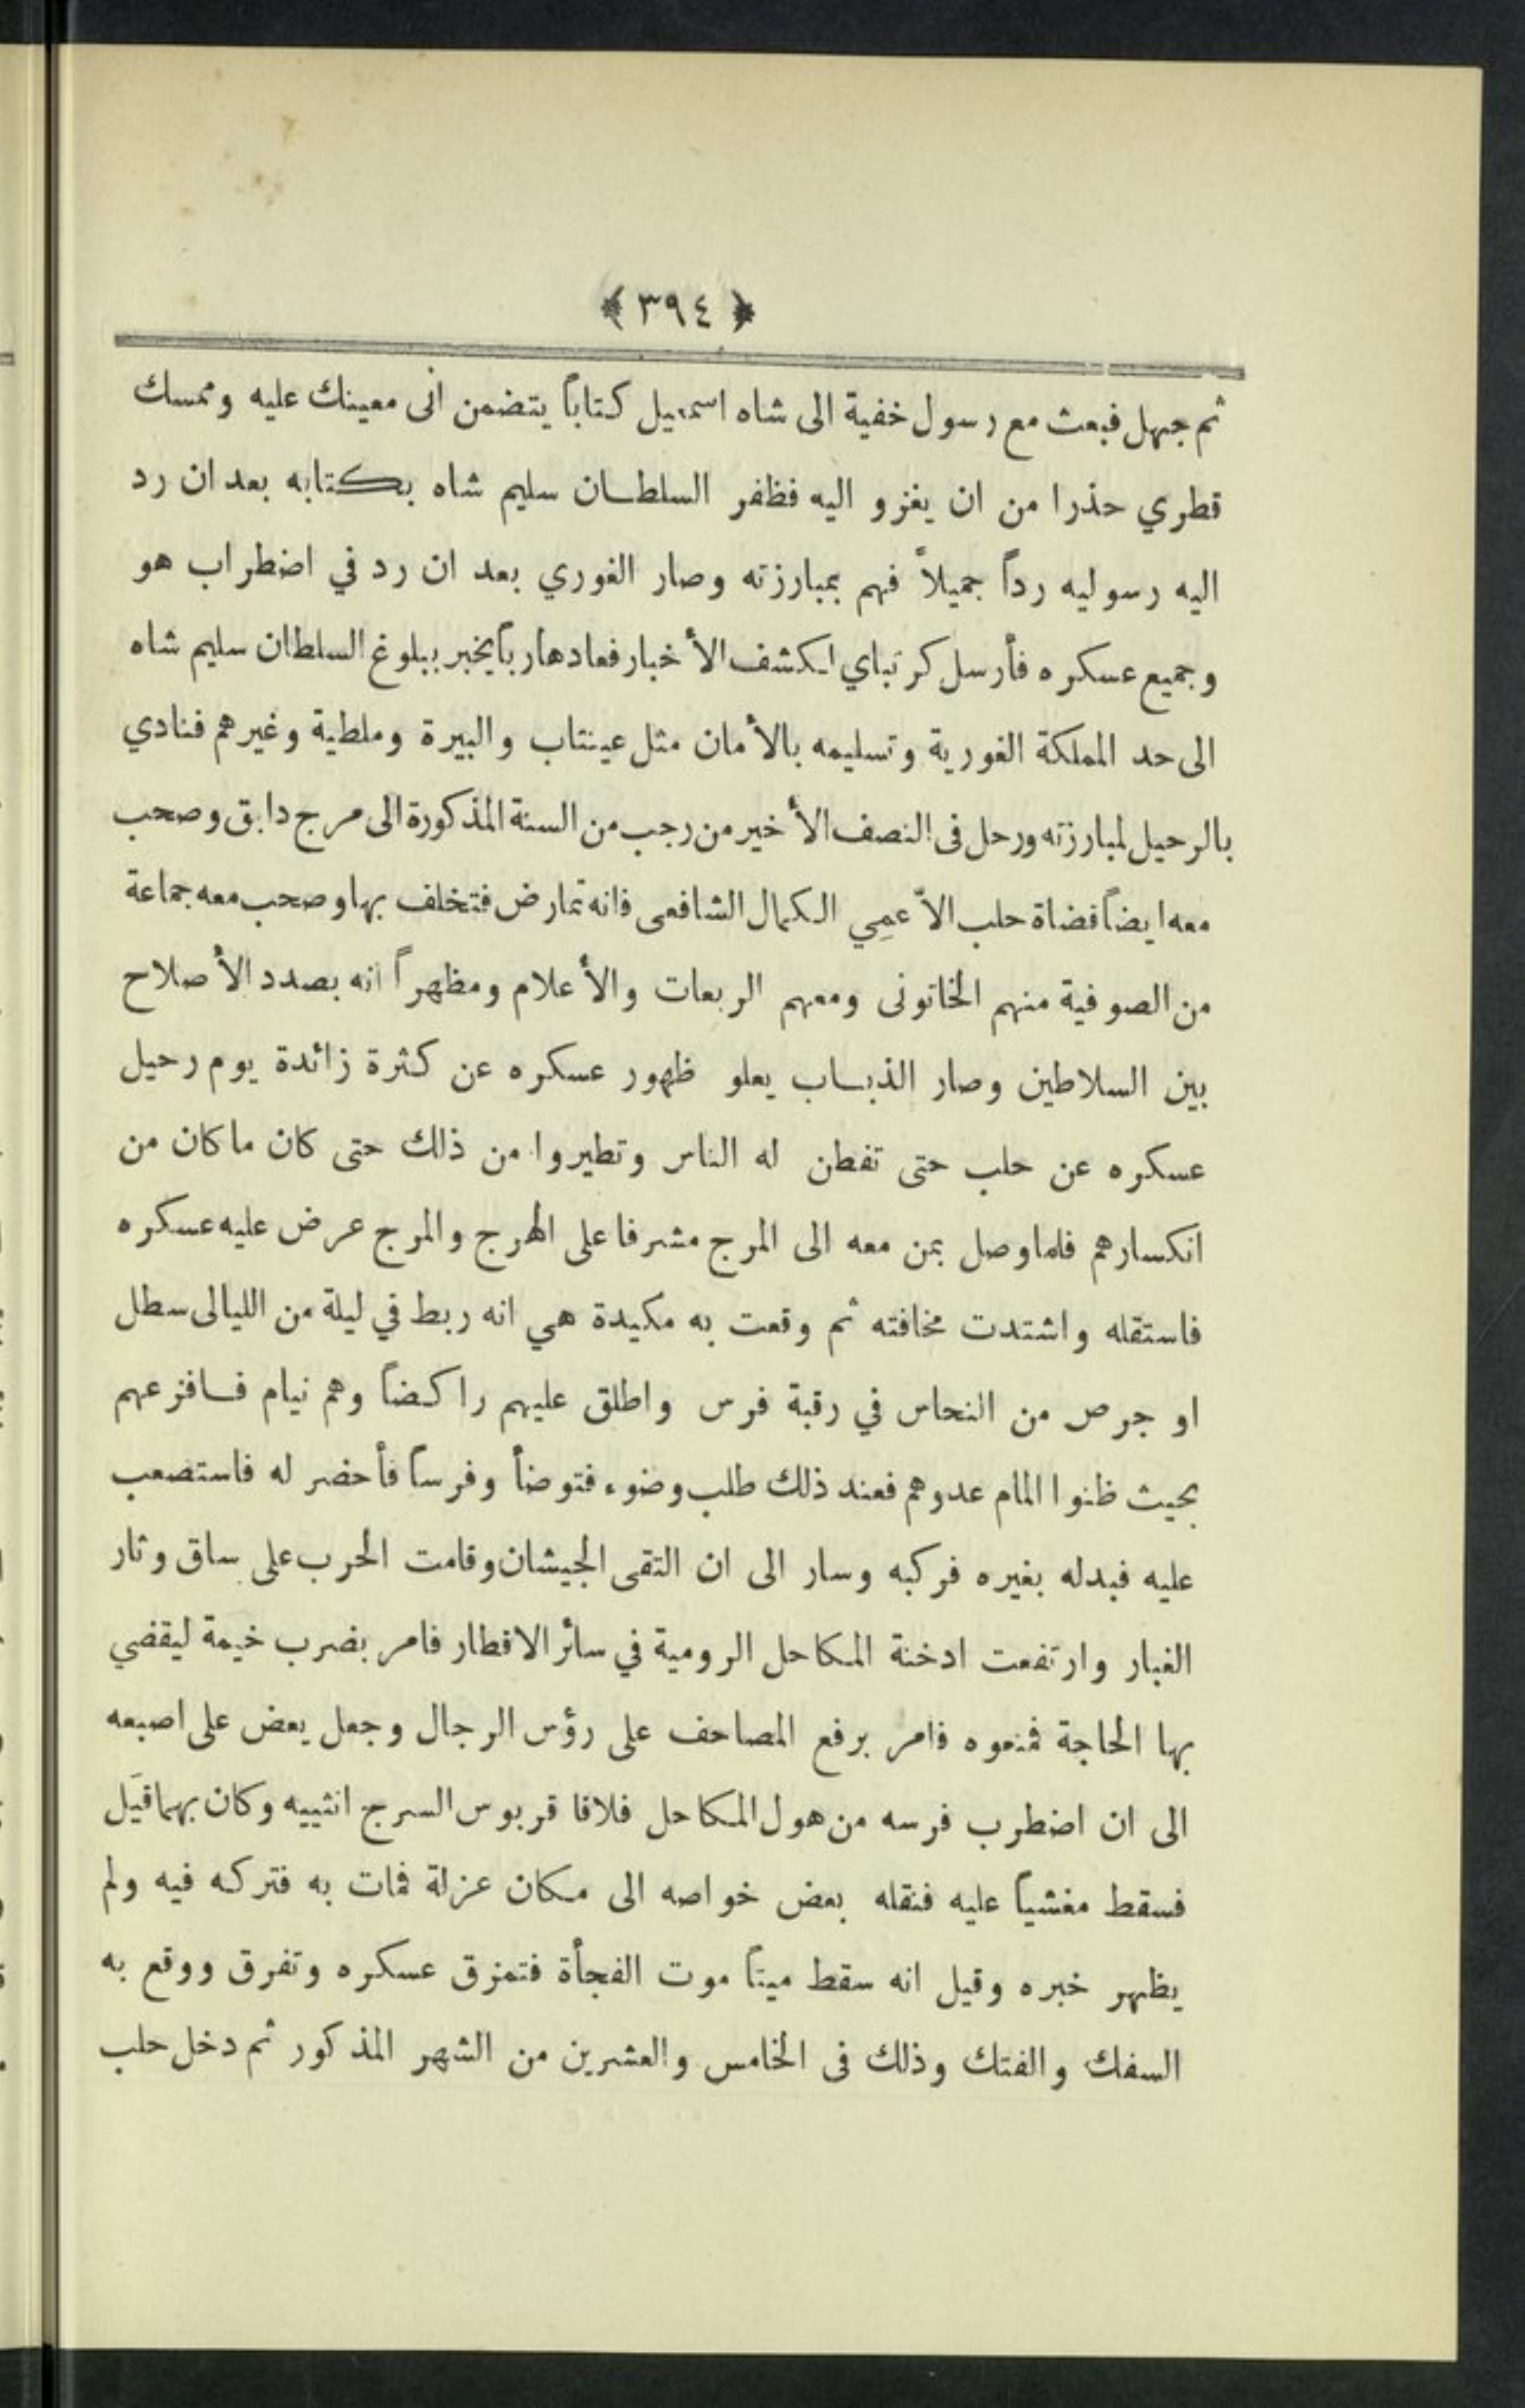 ﴿ ٣٩٤ ﴾
ثم جهل فبعث مع رسول خفية الى شاه اسمعيل كتاباً يتضمن انى معينك عليه وممسك
قطري حذرا من ان يغزو اليه فظفر السلطان سليم شاه بكتابه بعد ان رد
اليه رسوليه رداً جميلاً فهم بمبارزته وصار الغوري بعد ان رد في اضطراب هو
وجميع عسكره فأرسل كرتباي لكشف الأخبار فعاد هارباً يخبر ببلوغ السلطان سليم شاه
الى حد المملكة الغورية وتسليمه بالأمان مثل عينتاب والبيرة وملطية وغيرهم فنادي
بالرحيل لمبارزته ورحل فى النصف الأخير من رجب من السنة المذكورة الى مرج دابق وصحب
معه ايضاً قضاة حلب الاّ عمِي الكمال الشافعى فانه تمارض فتخلف بها وصحب معه جماعة
من الصوفية منهم الخاتونى ومعهم الربعات والأعلام ومظهراً انه بصدد الأصلاح
بين السلاطين وصار الذباب يعلو ظهور عسكره عن كثرة زائدة يوم رحيل
عسكره عن حلب حتى تفطن له الناس وتطيروا من ذلك حتى كان ما كان من
انكسارهم فلما وصل بمن معه الى المرج مشرفا على الهرج والمرج عرض عليه عسكره
فاستقله واشتدت مخافته ثم وقعت به مكيدة هي انه ربط في ليلة من الليالى سطل
او جرص من النحاس في رقبة فرس واطلق عليهم راكضاً وهم نيام فافزعهم
بحيث ظنوا المام عدوهم فعند ذلك طلب وضوء فتوضأ وفرساً فأحضر له فاستصعب
عليه فبدله بغيره فركبه وسار الى ان التقى الجيشان وقامت الحرب على ساق وثار
الغبار وارتفعت ادخنة المكاحل الرومية في سائر الاقطار فامر بضرب خيمة ليقضي
بها الحاجة فمنعوه فامر برفع المصاحف على رؤس الرجال وجعل يعض على اصبعه
الى ان اضطرب فرسه من هول المكاحل فلاقا قربوس السرج انثييه وكان بهما قَيَل
فسقط مغشياً عليه فنقله بعض خواصه الى مكان عزلة فمات به فتركه فيه ولم
يظهر خبره وقيل انه سقط ميتاً موت الفجأة فتمزق عسكره وتفرق ووقع به
السفك والفتك وذلك فى الخامس والعشرين من الشهر المذكور ثم دخل حلب